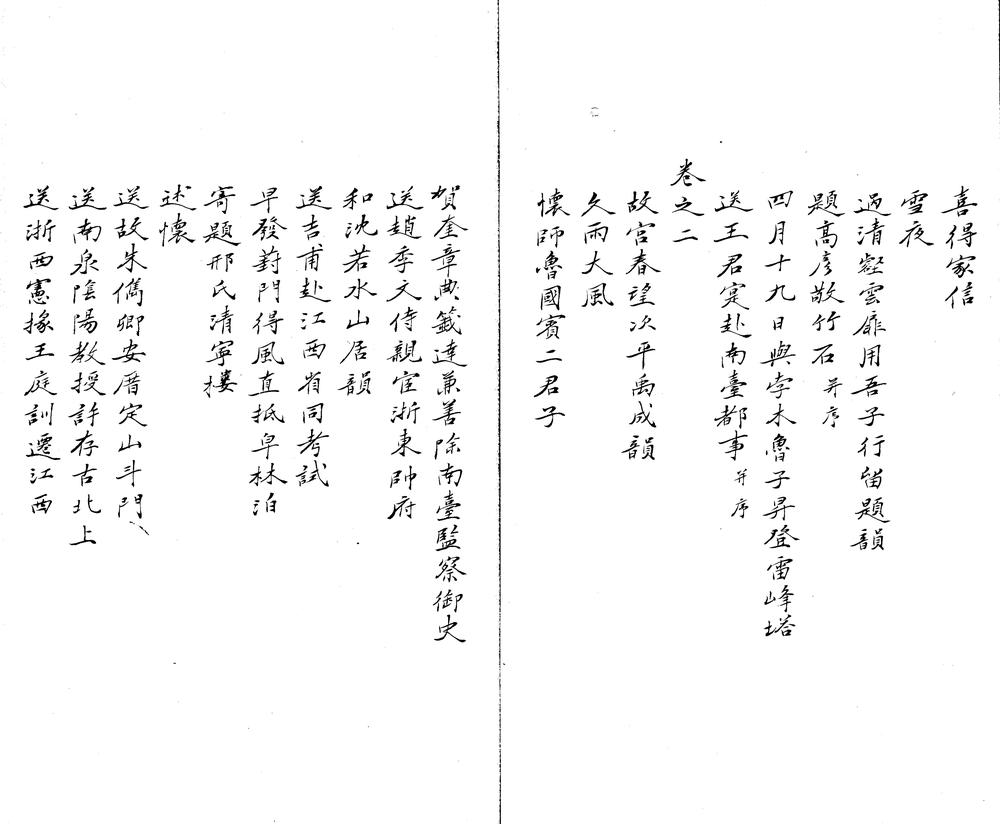 喜得家信
雪夜
過清壑雲扉用吾子行留題韻
題高彦敬竹石并序
四月十九日與孛木魯子昇登雷峰塔
送王君寔赴南臺都事并序
卷之二
故宮春望次平禹成韻
久雨大風
懷師魯國賓二君子
賀奎章典籤達兼善除南臺監察御史
送趙季文侍親宦浙東帥府
和沈若水山居韻
送吉甫赴江西省同考試
早發葑門得風直抵皁林泊
寄題邢氏清寧樓
述懷
送故朱儁卿安厝定山斗門
送南泉陰陽教授許存古北上
送浙西憲掾王庭訓遷江西